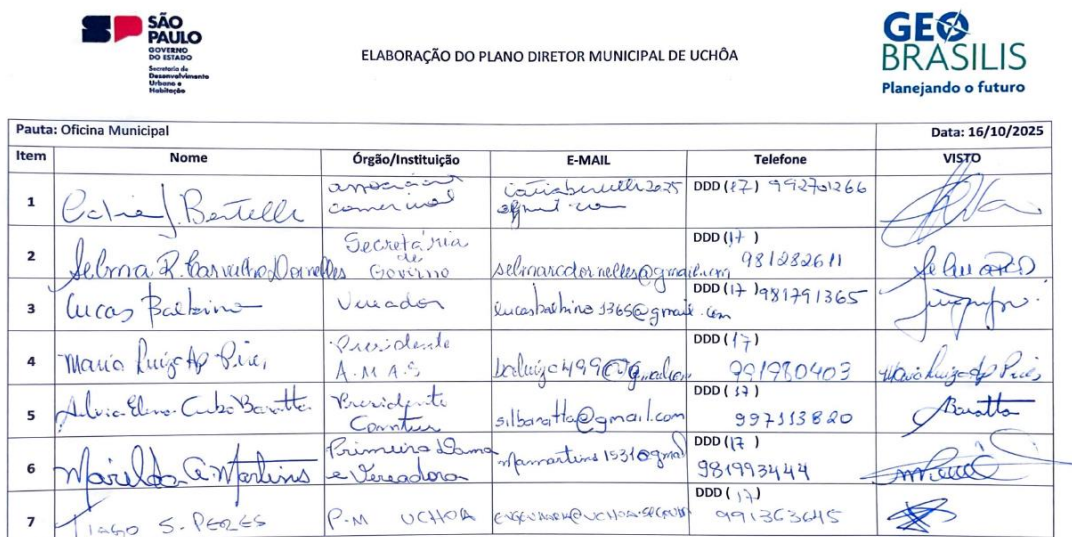 SÃO
PAULO
GOVERNO
DO ESTADO
Secretaria de
Desenvolvimento
Urbano e
Habitação
ELABORAÇÃO DO PLANO DIRETOR MUNICIPAL DE UCHÔA
GEO
BRASILIS
Planejando o futuro
Pauta: Oficina Municipal Data: 16/10/2025
Item Nome Órgão/Instituição E-MAIL Telefone VISTO
1 J. Bertelli comercial DDD (17) 992701266
2 Selma R. Carvalho Dornelles Secretária de Governo selmarcdornelles@gmail.com DDD (17) 981282611
3 Lucas Balbino Vereador lucasbalbino1365@gmail.com DDD (17) 981791365
4 Maria Luiza Ap Pires Presidente A.M.A.S DDD (17) 991980403 Maria Luiza Ap Pires
5 Silvia Elena Baratta Presidente Comtur silbaratta@gmail.com DDD (17) 997113820 Baratta
6 Marilda G. Martins Primeira Dama e Vereadora mamartins1531@gmail DDD (17) 981993444
7 Tiago S. PERES P.M UCHOA DDD (17) 991363645